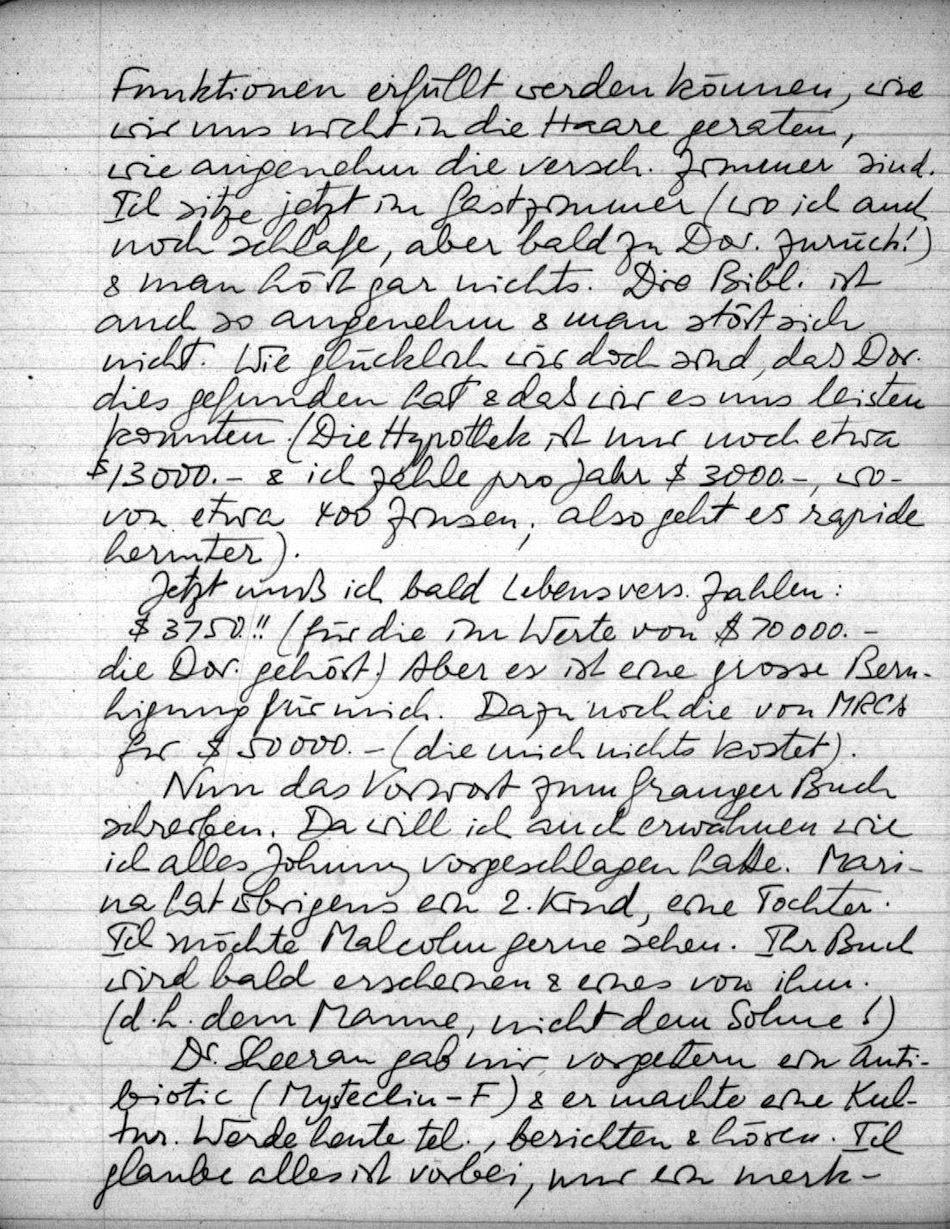 Funktionen erfüllt werden können, wie
wir uns nicht in die Haare geraten,
wie angenehm die versch. Zimmer sind.
Ich sitze jetzt im Gastzimmer (wo ich auch
noch schlafe, aber bald zu Dor. zurück!)
& man hört gar nichts. Die Bibl. ist
auch so angenehm & man stört sich
nicht. Wie glücklich wir doch sind, daß Dor.
dies gefunden hat & daß wir es uns leisten
konnten. (Die Hypothek ist nur noch etwa
$13000.- & ich zahle pro Jahr $3000.-, wo-
von etwa 400 Zinsen, also geht es rapide
herunter).
Jetzt muß ich bald Lebensvers. zahlen:
$3750!! (für die im Werte von $70000.-
die Dor. gehört.) Aber es ist eine grosse Beru-
higung für mich. Dazu noch die von MRCA
für $50000.- (die mich nichts kostet).
Nun das Vorwort zum Granger Buch
schreiben. Da will ich auch erwähnen wie
ich alles Johnny vorgeschlagen hatte. Mari-
na hat übrigens ein 2. Kind, eine Tochter.
Ich möchte Malcolm gerne sehen. Ihr Buch
wird bald erscheinen & eines von ihm.
(d.h. dem Manne, nicht dem Sohne!)
Dr. Sheeran gab mir vorgestern ein Anti-
biotic (Mysteclin-F) & er machte eine Kul-
tur. Werde heute tel., berichten & hören. Ich
glaube alles ist vorbei, nur ein merk-